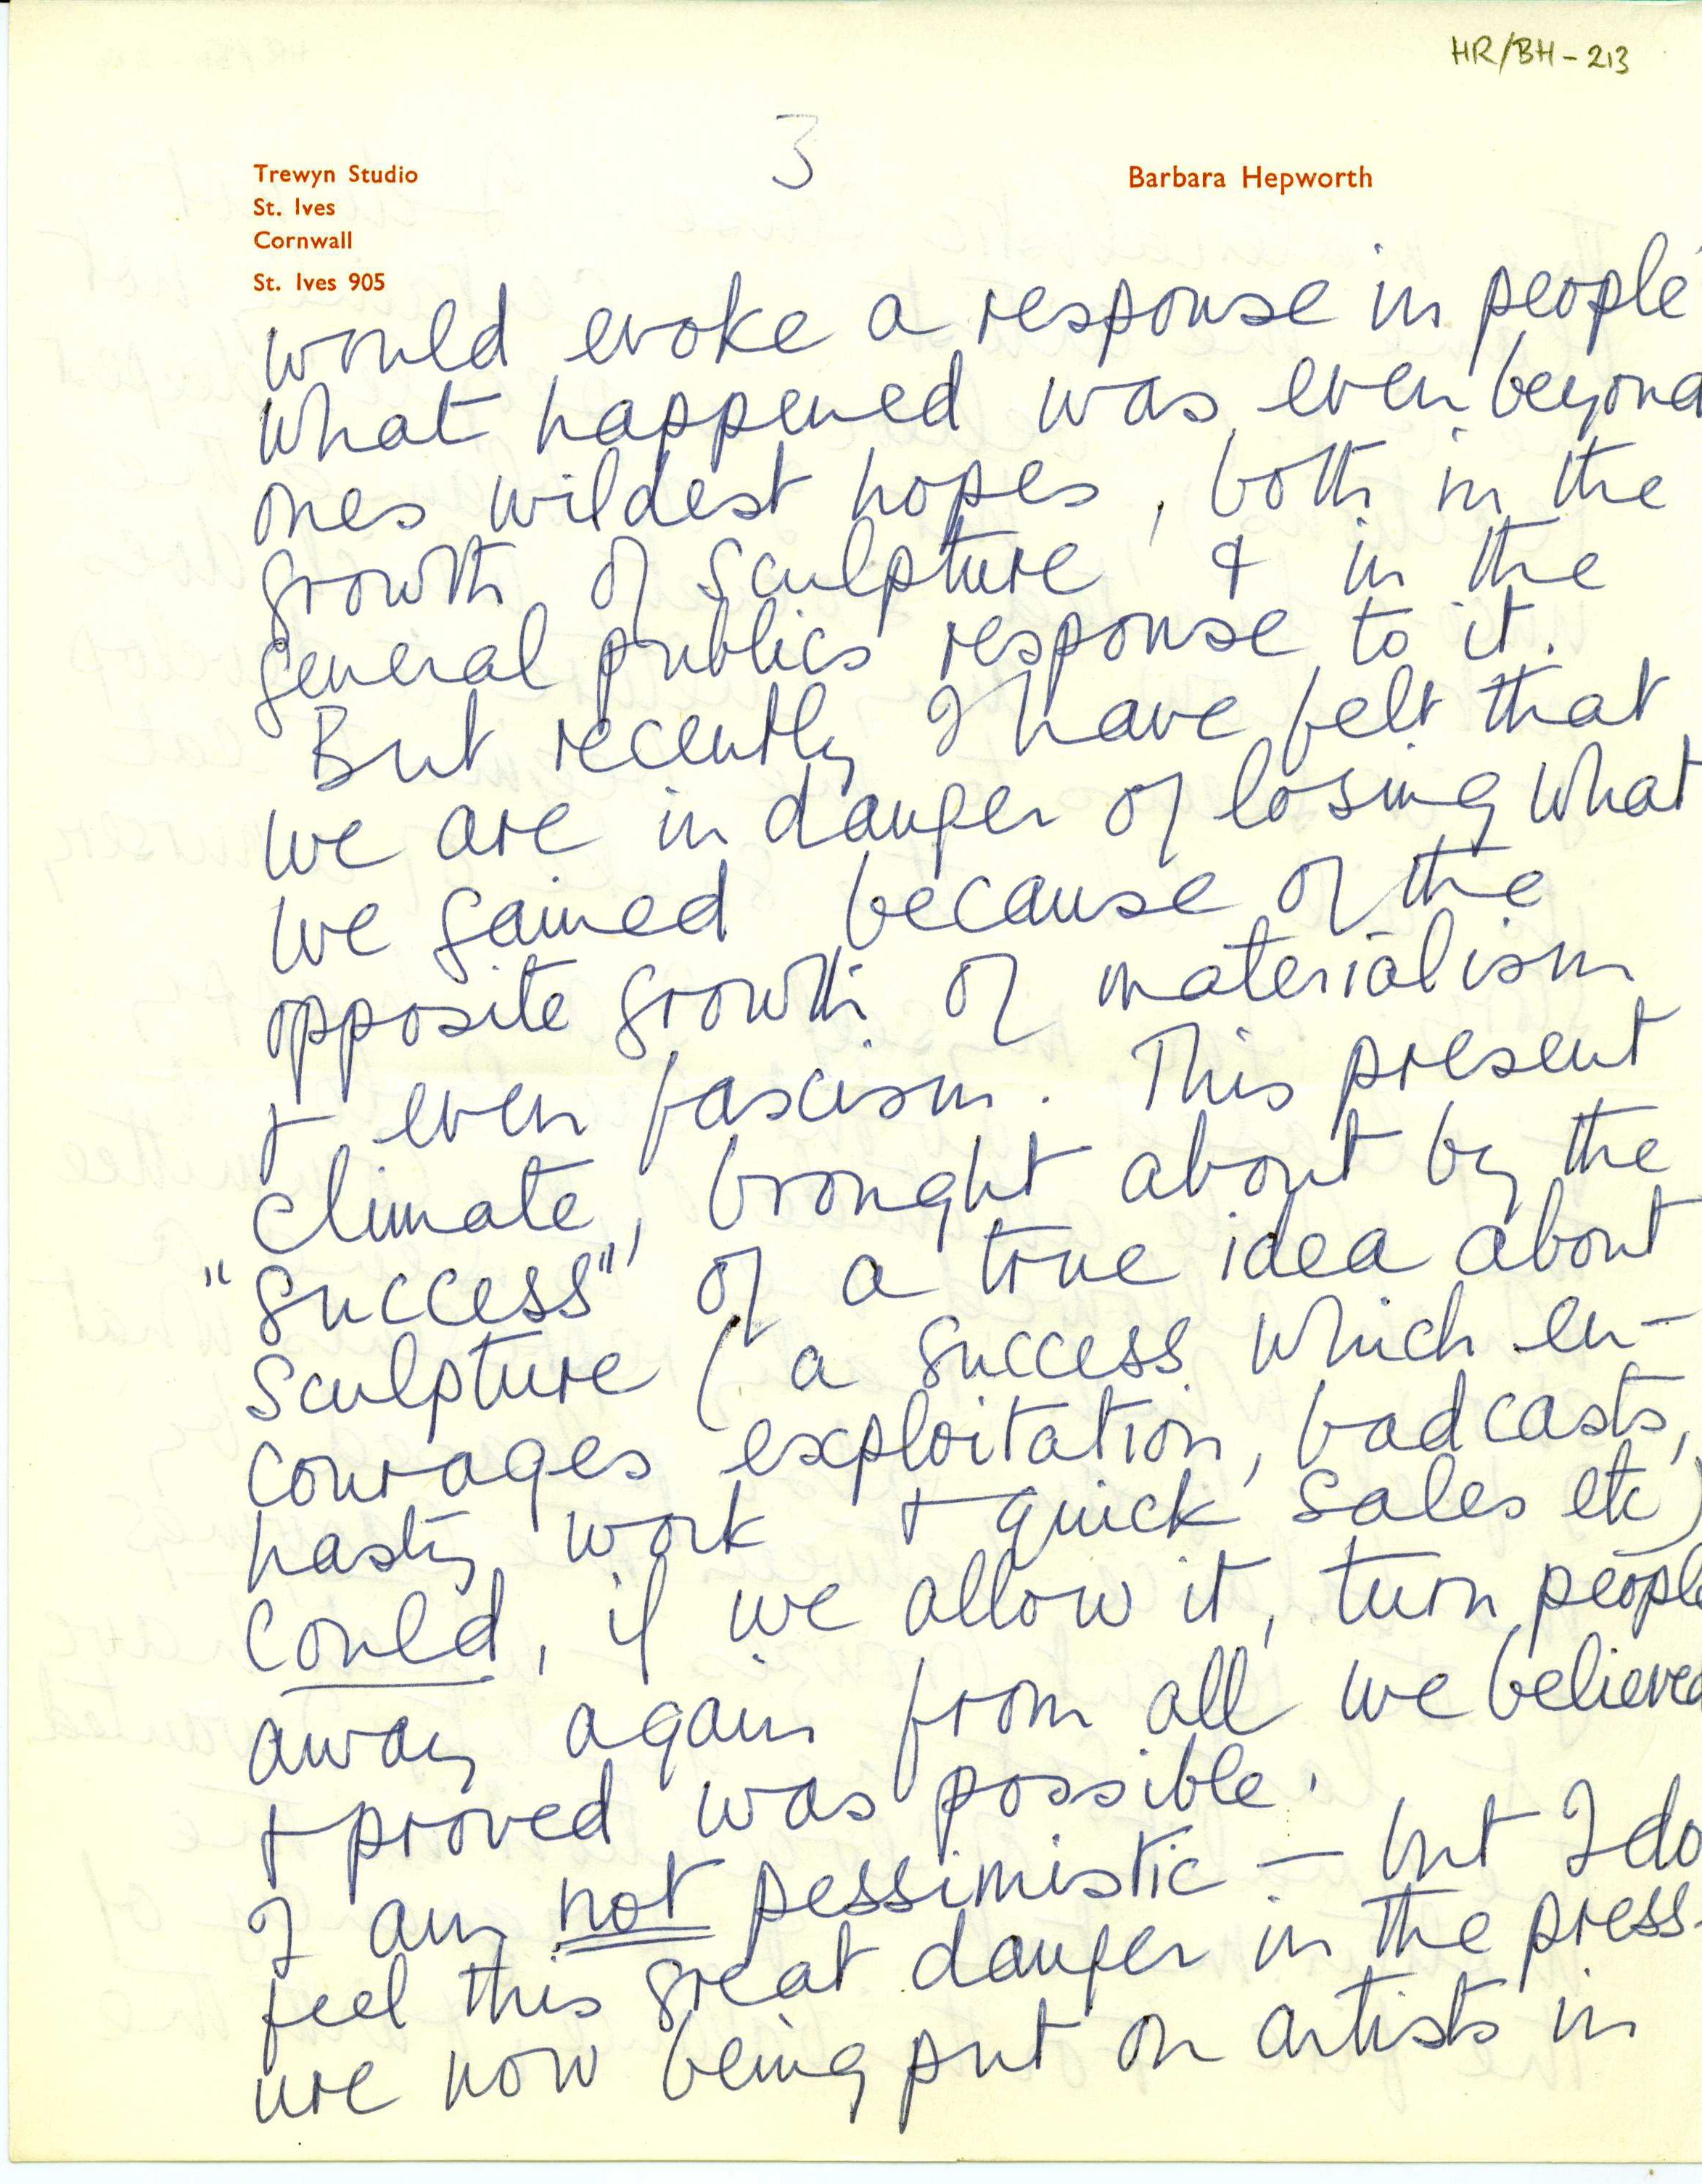 HR/BH - 213
3
Trewyn Studio
St. Ives
Cornwall
St. Ives 905
Barbara Hepworth
would evoke a response in people
What happened was even beyond
ones wildest hopes, both in the
growth of sculpture & in the
general publics response to it.
But recently I have felt that
we are in danger of losing what
we gained because of the
opposite growth of materialism
& even fascism. This present
climate, brought about by the
"success" of a true idea about
sculpture (a success which en-
courages exploitation, bad casts,
hasty work & quick sales etc)
could, if we allow it, turn people
away again from all we believed
& proved was possible.
I am not pessimistic – but I do
feel this great danger in the press-
ure now being put on artists in